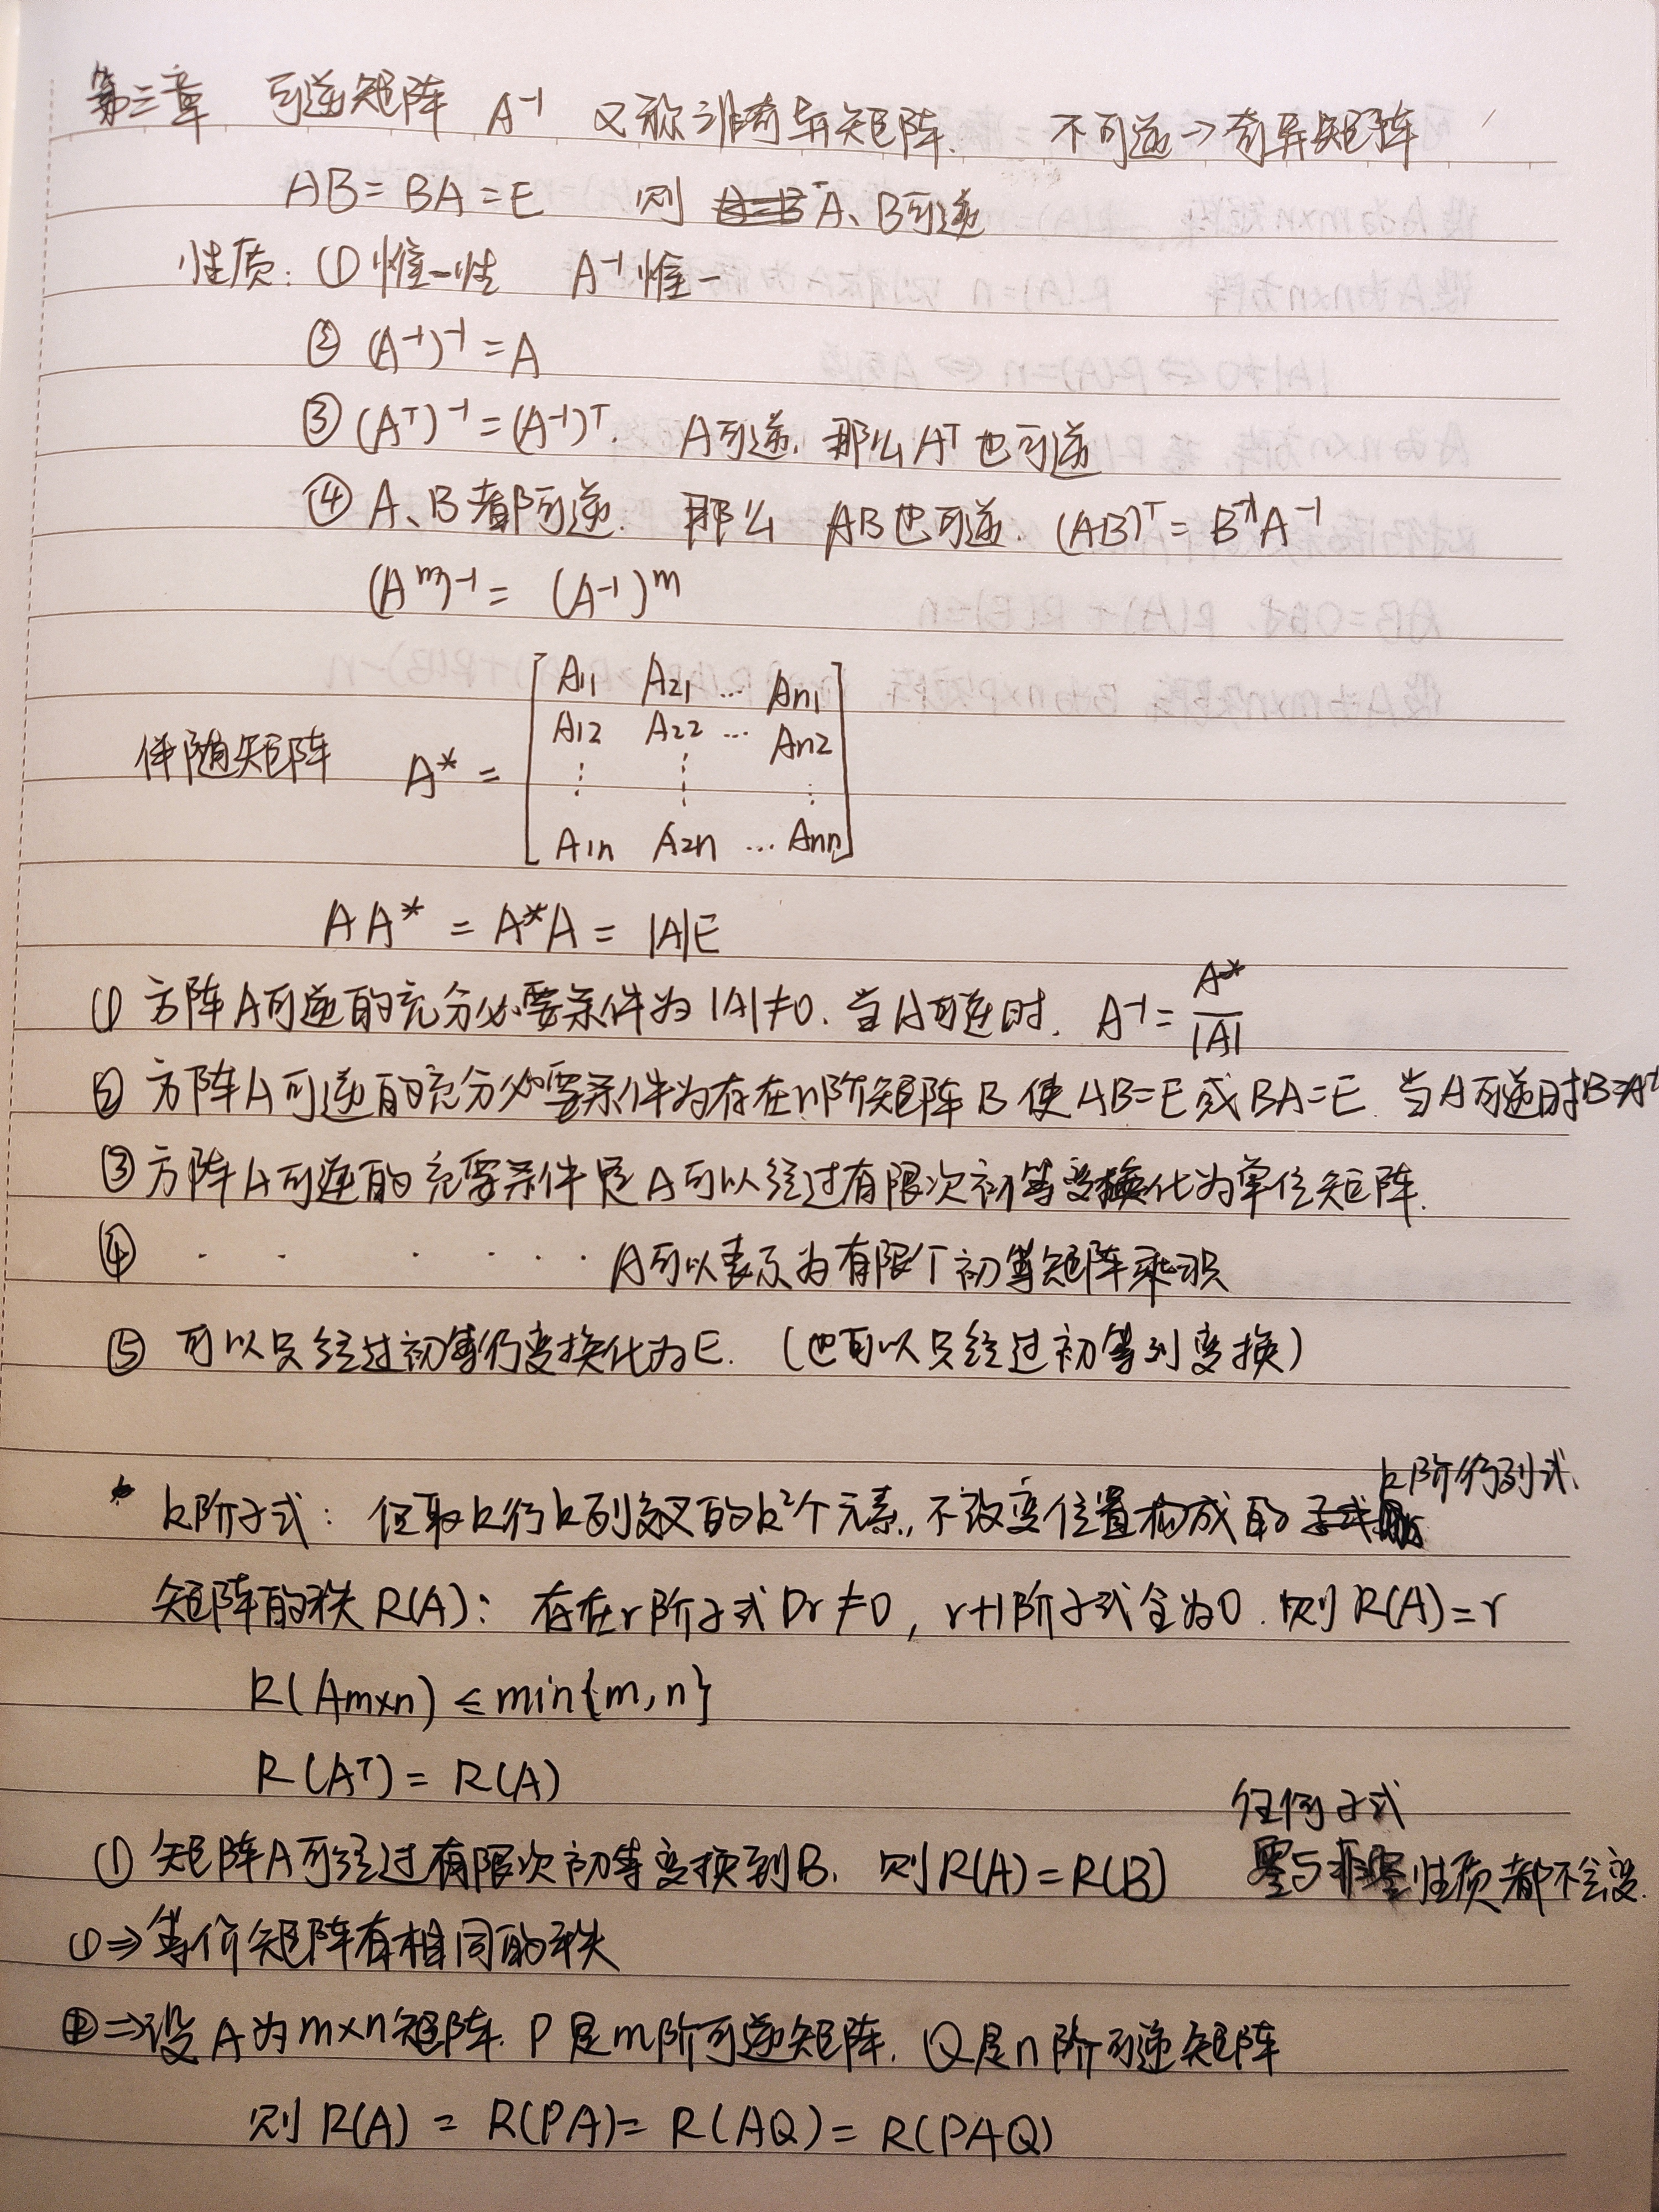 第三章 可逆矩阵 A⁻¹ 又称非奇异矩阵. 不可逆→奇异矩阵
AB=BA=E 则 A、B可逆
性质: ①惟一性 A⁻¹惟一
② (A⁻¹)⁻¹=A
③ (Aᵀ)⁻¹=(A⁻¹)ᵀ. A可逆, 那么Aᵀ也可逆
④ A、B都可逆. 那么 AB也可逆. (AB)ᵀ= B⁻¹A⁻¹
(Aᵐ)⁻¹= (A⁻¹)ᵐ
伴随矩阵 A* =
[A11 A21 … An1
A12 A22 … An2
⋮ ⋮ ⋮
A1n A2n … Ann]
AA* = A*A = |A|E
① 方阵A可逆的充分必要条件为|A|≠0. 当A可逆时. A⁻¹= A*/|A|
② 方阵A可逆的充分必要条件为存在n阶矩阵B使AB=E或BA=E. 当A可逆时B=A⁻¹
③ 方阵A可逆的充要条件是A可以经过有限次初等变换化为单位矩阵.
④ · · · · · · A可以表示为有限个初等矩阵乘积
⑤ 可以只经过初等行变换化为E. (也可以只经过初等列变换)
* k阶子式: 任取k行k列交叉的k²个元素, 不改变位置构成的 k阶行列式.
矩阵的秩R(A): 存在r阶子式Dr≠0, r+1阶子式全为0. 则R(A)=r
R(Am×n) ≤ min{m,n}
R(Aᵀ)= R(A)
任何子式
① 矩阵A可经过有限次初等变换到B. 则R(A)=R(B) 零与非零性质都不会变.
①⇒等价矩阵有相同的秩
②⇒设A为m×n矩阵. P是m阶可逆矩阵. Q是n阶可逆矩阵
则R(A) = R(PA)= R(AQ)= R(PAQ)